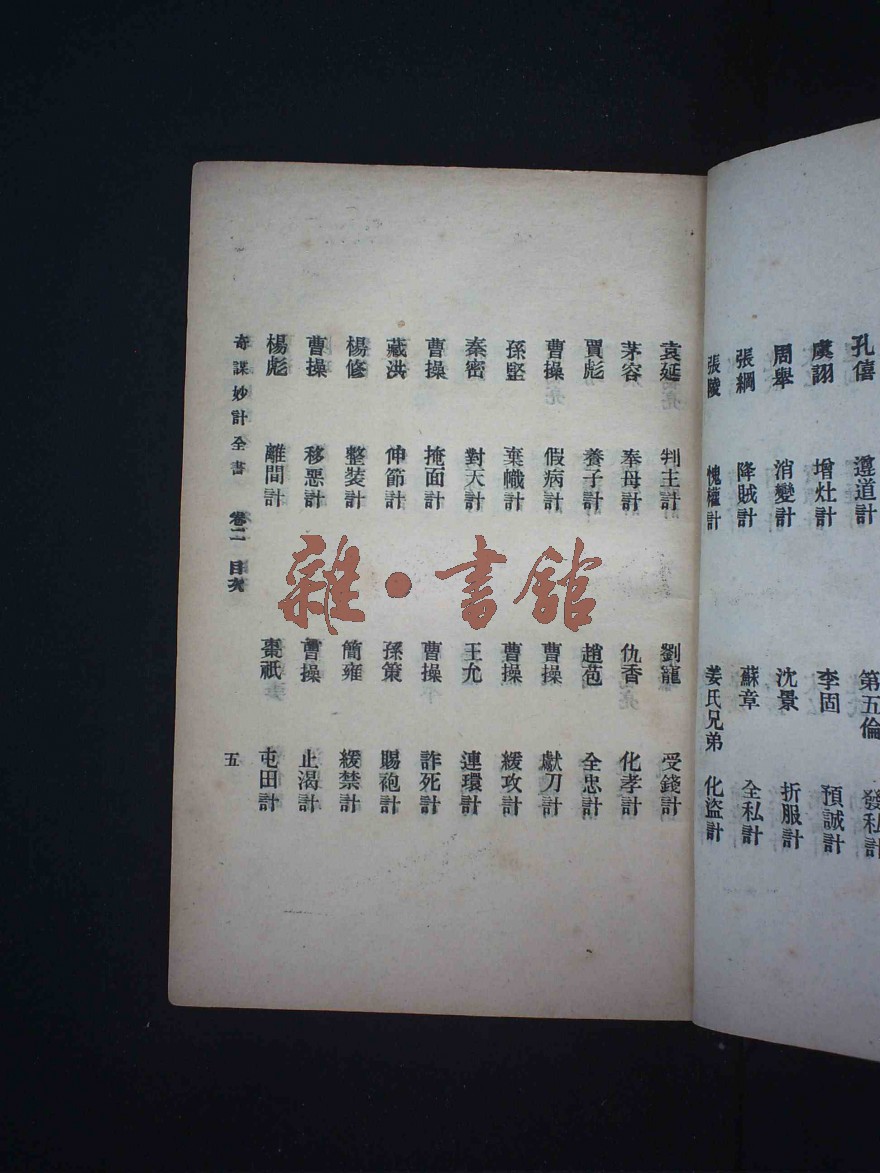 孔僖 遵道計 第五倫 發私計
虞詡 增灶計 李固 預誠計
周舉 消變計 沈景 折服計
張綱 降賊計 蘇章 全私計
張陵 愧權計 姜氏兄弟 化盜計
袁延 判主計 劉寵 受錢計
茅容 奉母計 仇香 化孝計
賈彪 養子計 趙苞 全忠計
曹操 假病計 曹操 獻刀計
孫堅 棄幟計 曹操 緩攻計
秦密 對天計 王允 連環計
曹操 掩面計 曹操 詐死計
藏洪 伸節計 孫策 賜袍計
楊修 整裝計 簡雍 緩禁計
曹操 移惡計 曹操 止渴計
楊彪 離間計 棗祇 屯田計
奇謀妙計全書 卷二 目次 五
雜·書館